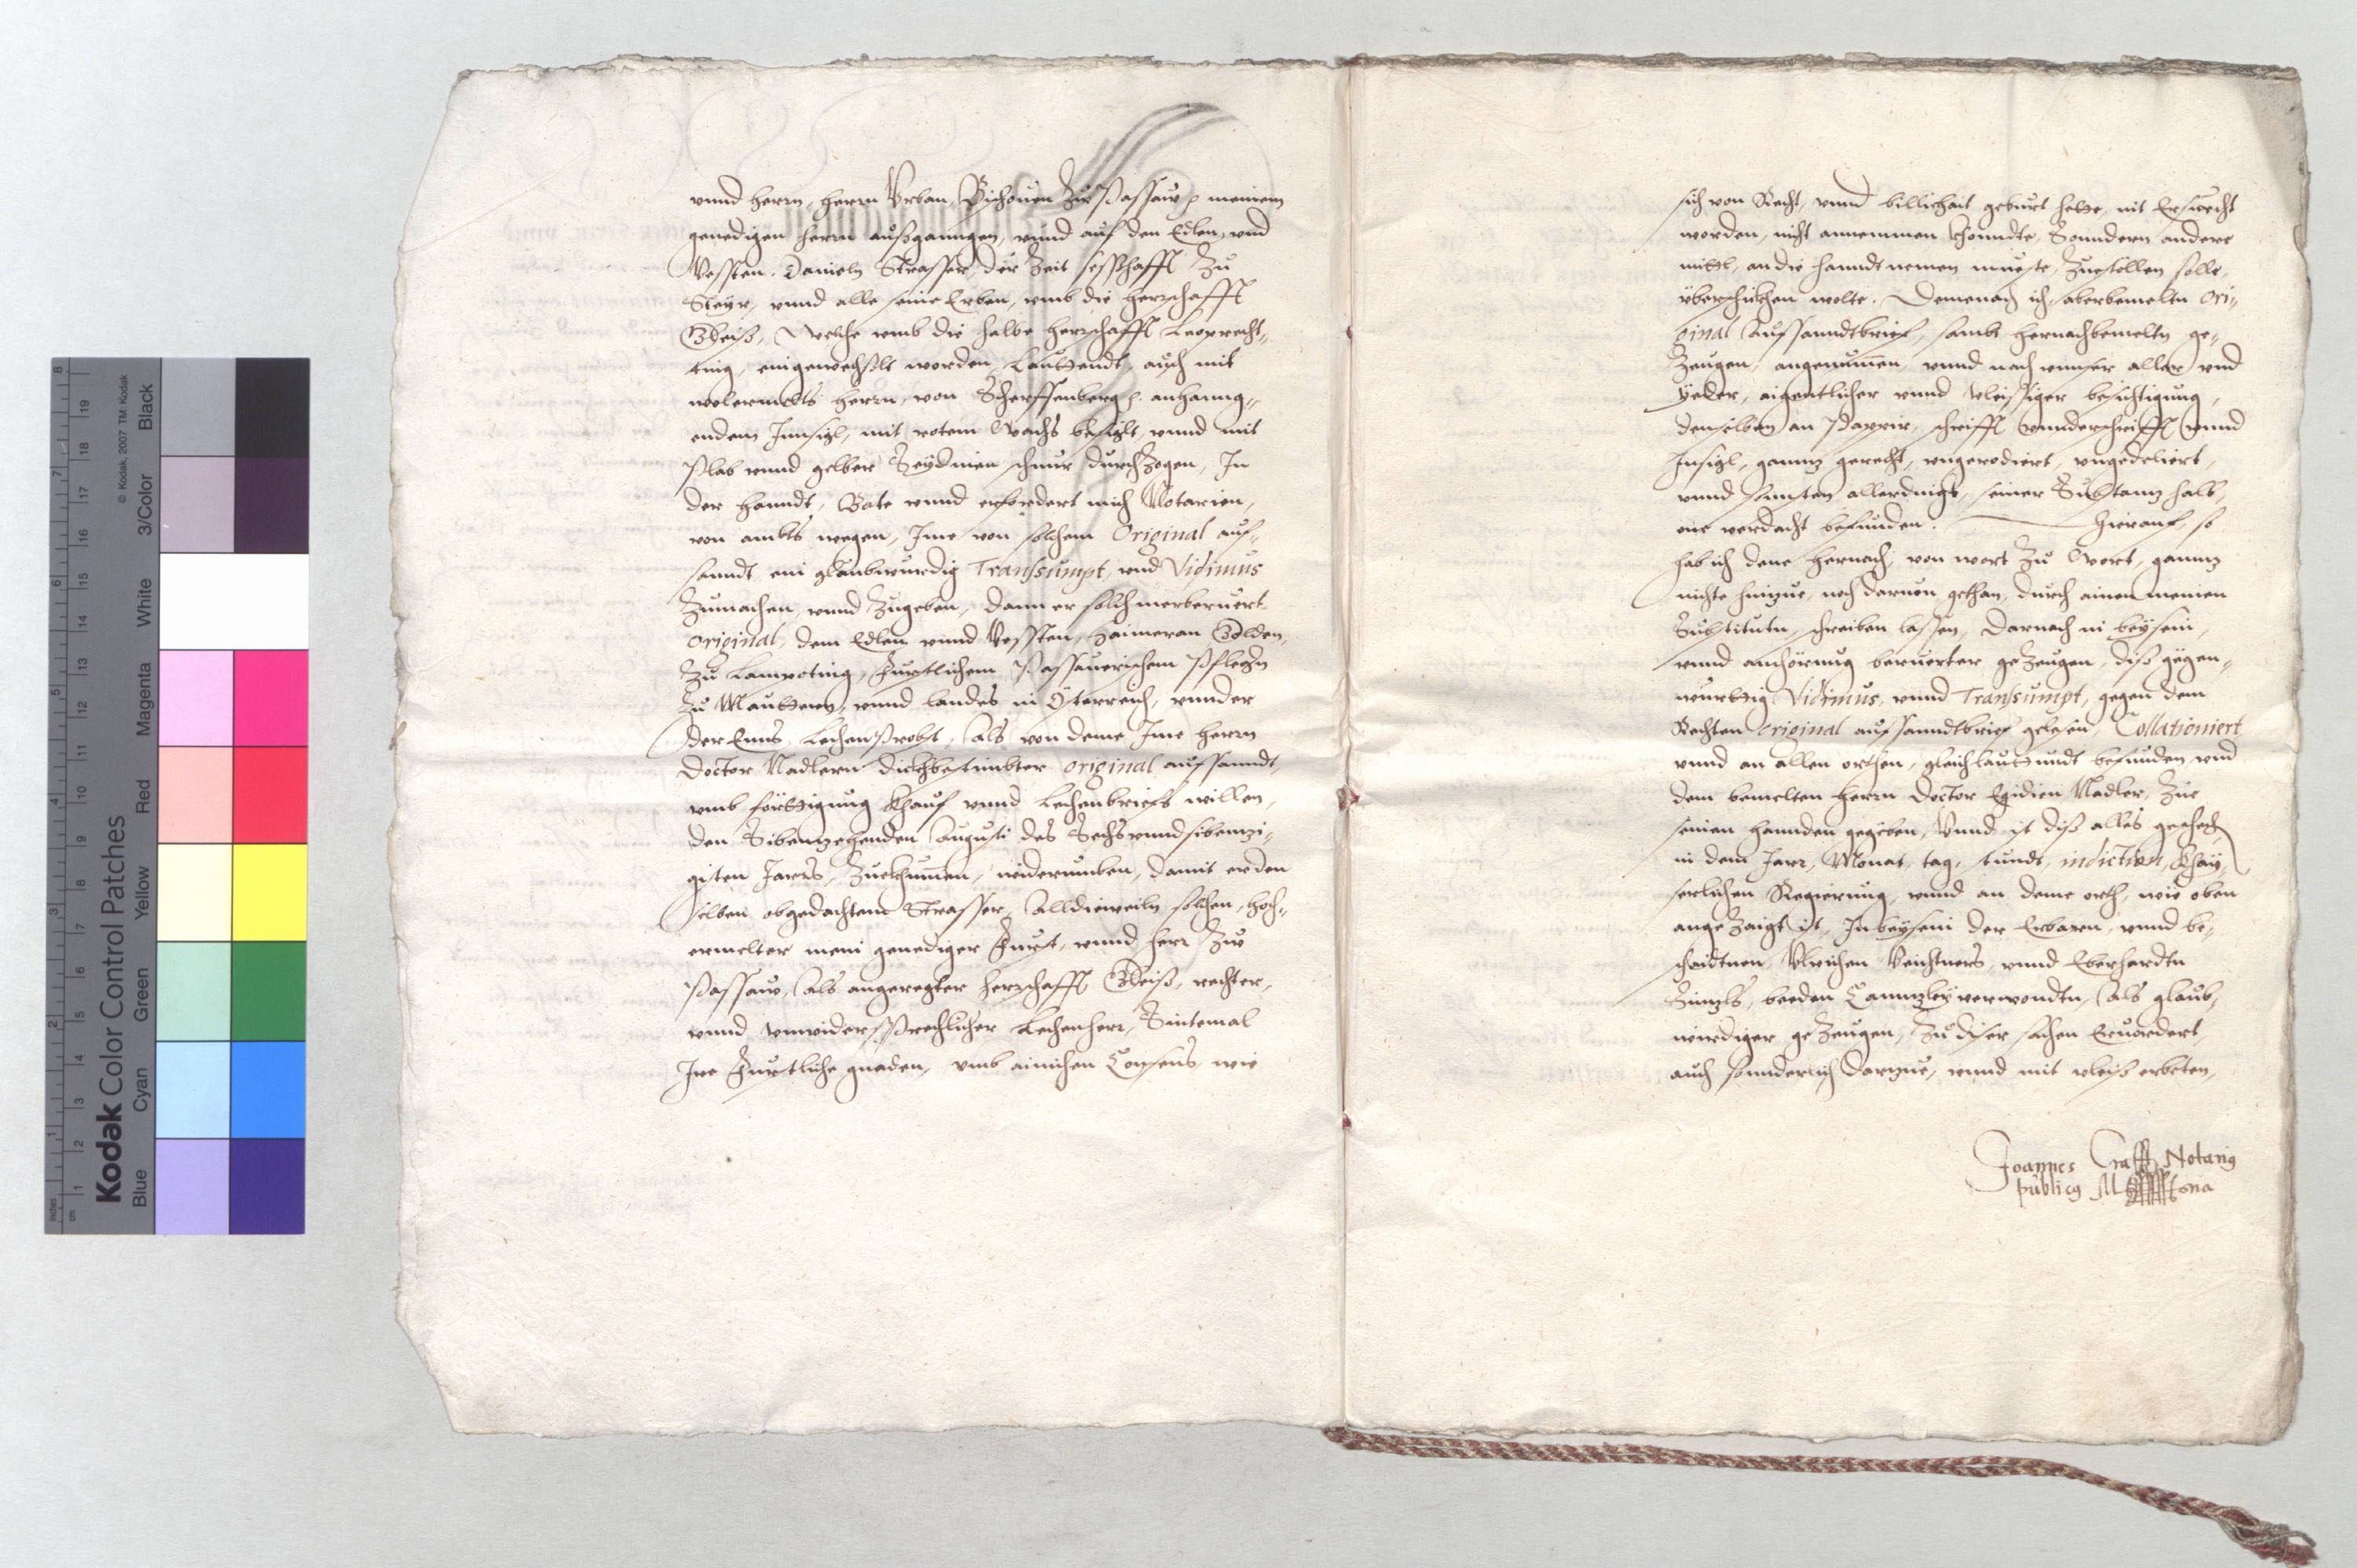 vnnd herrn, herrn Vrban, Bischouen Zu Passaw p meinem
genedigen herrn außganngen, vnnd auf den Edlen, vnd
Vessten. Danieln Strasser, der Zeit sesshafft Zu
Steyr, vnnd alle seine Erben, vmb die herrschafft
Gleiß, Welche vmb die halbe herrschafft Leoprecht,,
ting, eingewechslt worden, Lauttendt, auch mit
wolermelts herrn, von Scherffenberg p. anhanng,,
endem Innsigl, mit rotem Wachs besiglt, vnnd mit
Plab vnnd gelber Seydinen schnur durchzogen, In
der hanndt, Bate vnnd erfordert mich Notarien,
von ambts wegen, Ime von solchem Original auf,,
sanndt, ein glaubwurdig Transsumpt, vnd Vidimus
Zumachen, vnnd Zugeben, Dann er solch merberuert
original, dem Edlen vnnd Vessten, Haimeran Golden,
Zu Lampoting, Furstlichem Passauerischem Pflegern
Zu Mauttern, vnnd Landes in Österreich, vnnder
der Enns, Lechen Probst, Als von deme Ime herrn
Doctor Nadlern dickhbestimbter original aufsanndt,
vmb förttigung Khauf vnnd Lechenbriefs willen,
den Sibenzehenden Augusti des Sechsvnndsibenzi,,
gisten Jares, Zuekhumen, widerumben, damit er den
selben obgedachtem Strasser, Alldieweiln solchen, hoch,,
ermelter mein genediger Furst, vnnd herr Zu
Passaw, Als angeregter herrschafft Gleiß, rechter,
vnnd vnwidersprechlicher Lechenherr, Sintemal
Ire Furstliche gnaden, vmb ainichen Consens, wie
sich von Recht, vnnd billichait geburt hette, nit Ersuecht
worden, nicht annemmen khonndte, Sonndern andere
mittl, an die hanndt nemen mueste, Zuestellen solle,
vberschickhen wolte. Demenach ich, aberbemeltn ori,,
ginal Aufsanndtbrief, sambt hernachbemeltn ge,,
Zeugen, angenumen, vnnd nach vnnser aller vnd
yeder, aigentlicher vnnd vleissiger besichtigung,
denselben an Pappir, schrifft vnnderschrifft vnnd
Insigl, gannz gerecht, vngerodiert, vngedeliert,
vnnd sonnsten allerdings, seiner Substanz halb,
one verdacht befunden. Hierauf, so
hab ich dene hernach, von wort Zu Wort, gannz
nichts hinzue, noch daruon gethan, durch ainen meinen
Substitutn, schreiben lassen, Darnach in beysein,
vnnd anhörung beruerter geZeugen, diß gegen,,
wurttig Vidimus, vnnd Transsumpt, gegen dem
Rechten original aufsanndtbrief gelesen, Collationiert
vnnd an allen orthen, gleichlauttundt befunden, vnd
dem bemelten herrn Doctor Egidien Nadler, Zue
seinen hannden gegeben, Vnnd ist diß alles geschech
in dem Jarr, Monat, tag, stundt, indiction, Khay,
serlichen Regierung, vnnd an deme orth, wie oben
angeZaigt ist, In beysein der Erbaren, vnnd be,,
schaidnen, Vlrichen Veichtners, vnnd Eberhardtn
Hinzls, beeden Canntzley verwondtn, Als glaub,
wirdiger geZeugen, Zu diser sachen Eruordert,
auch sonnderlich darzue, vnnd mit vleiß erbeten,
Joannes Crafft Notarig
publicg